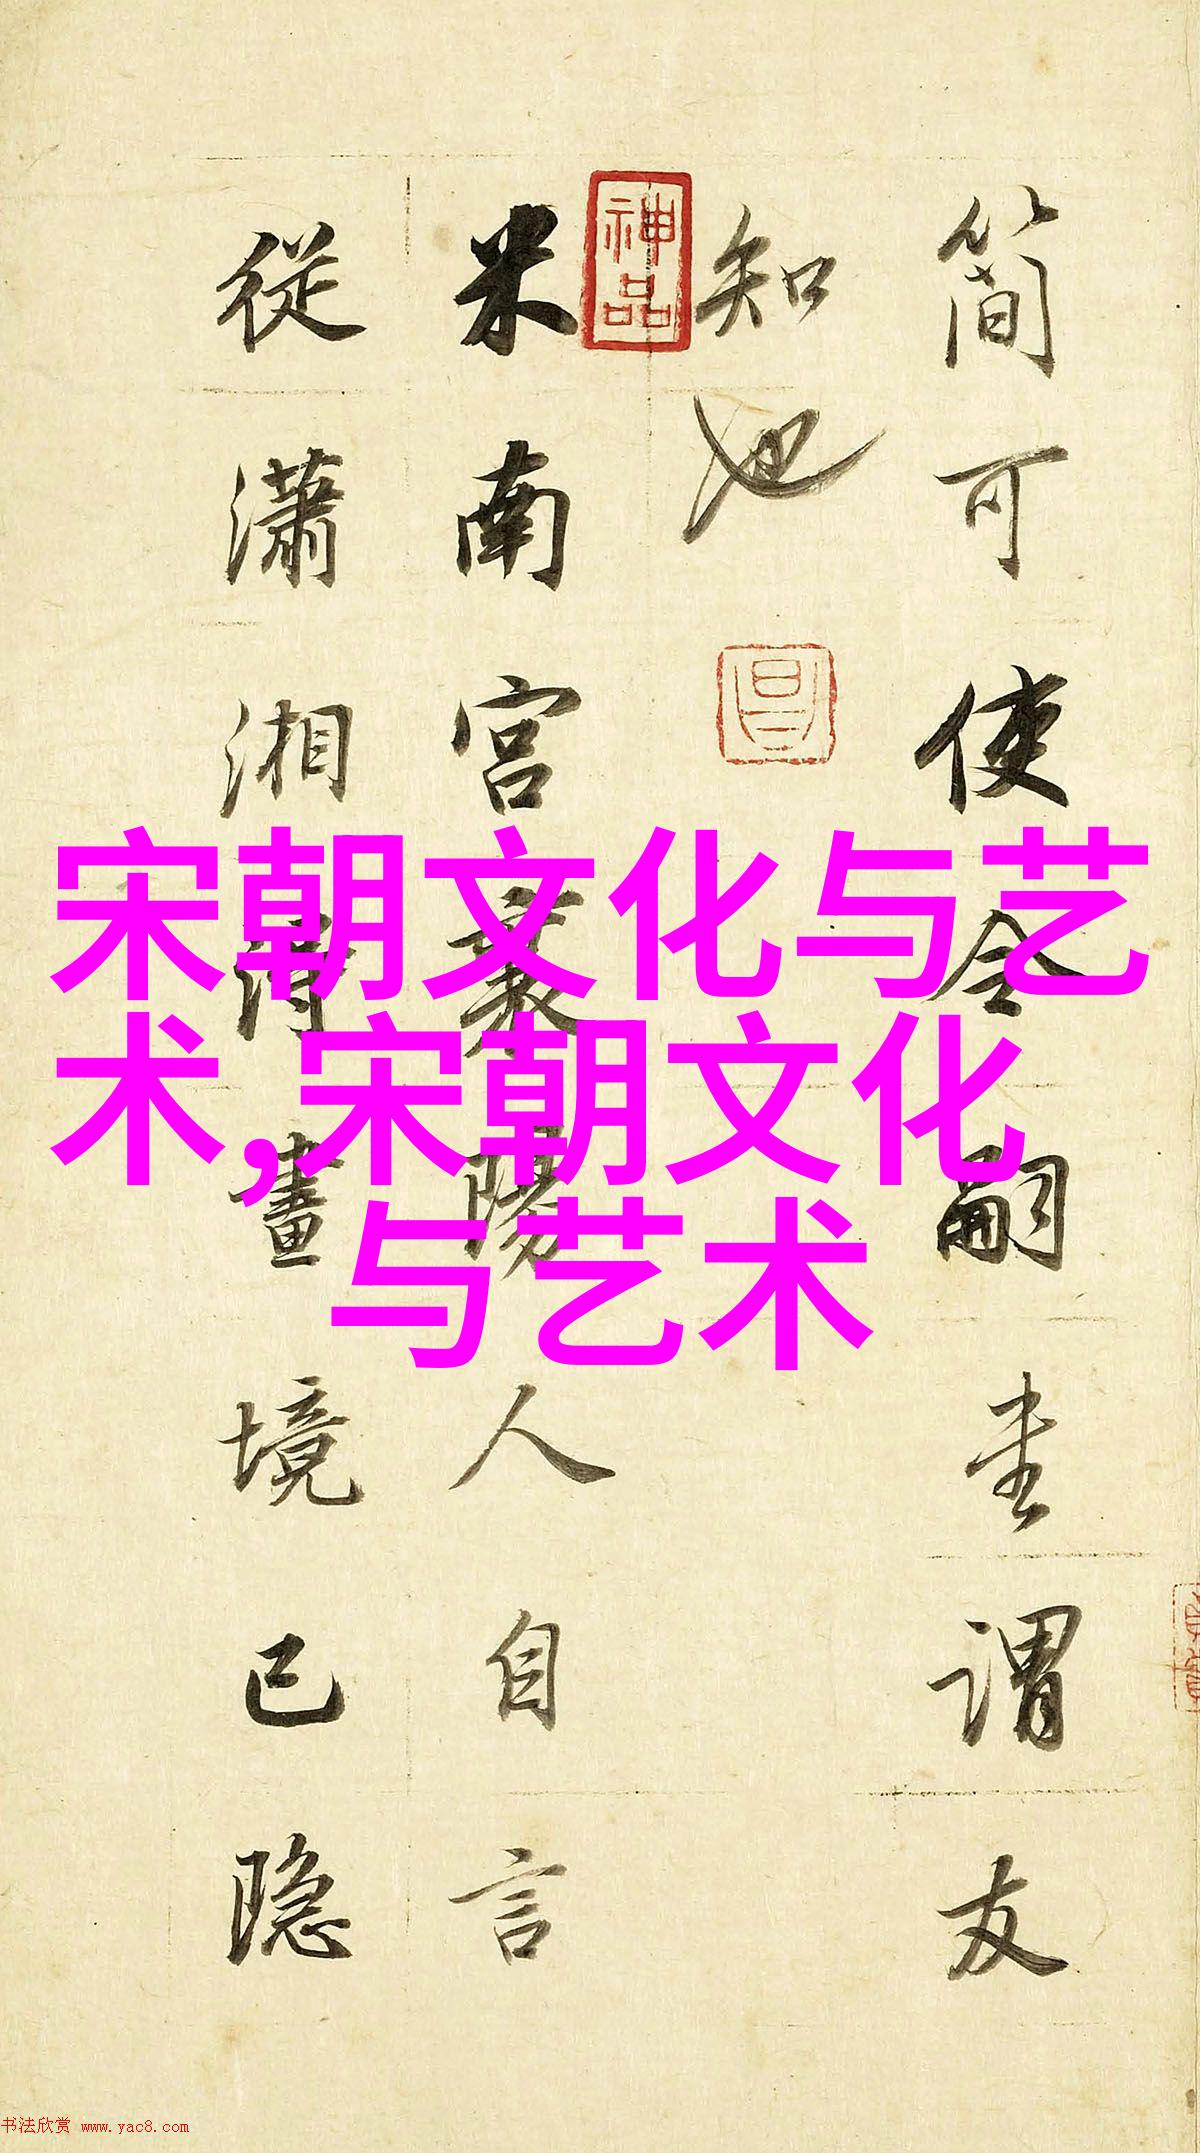 簡可使令嗣圭謂友
知也
神品
昌
米南宮襄陽人自言
從瀟湘得畫境已隐
宋朝文化与艺
术,宋朝文化
与艺术
书法欣赏 www.yac8.com